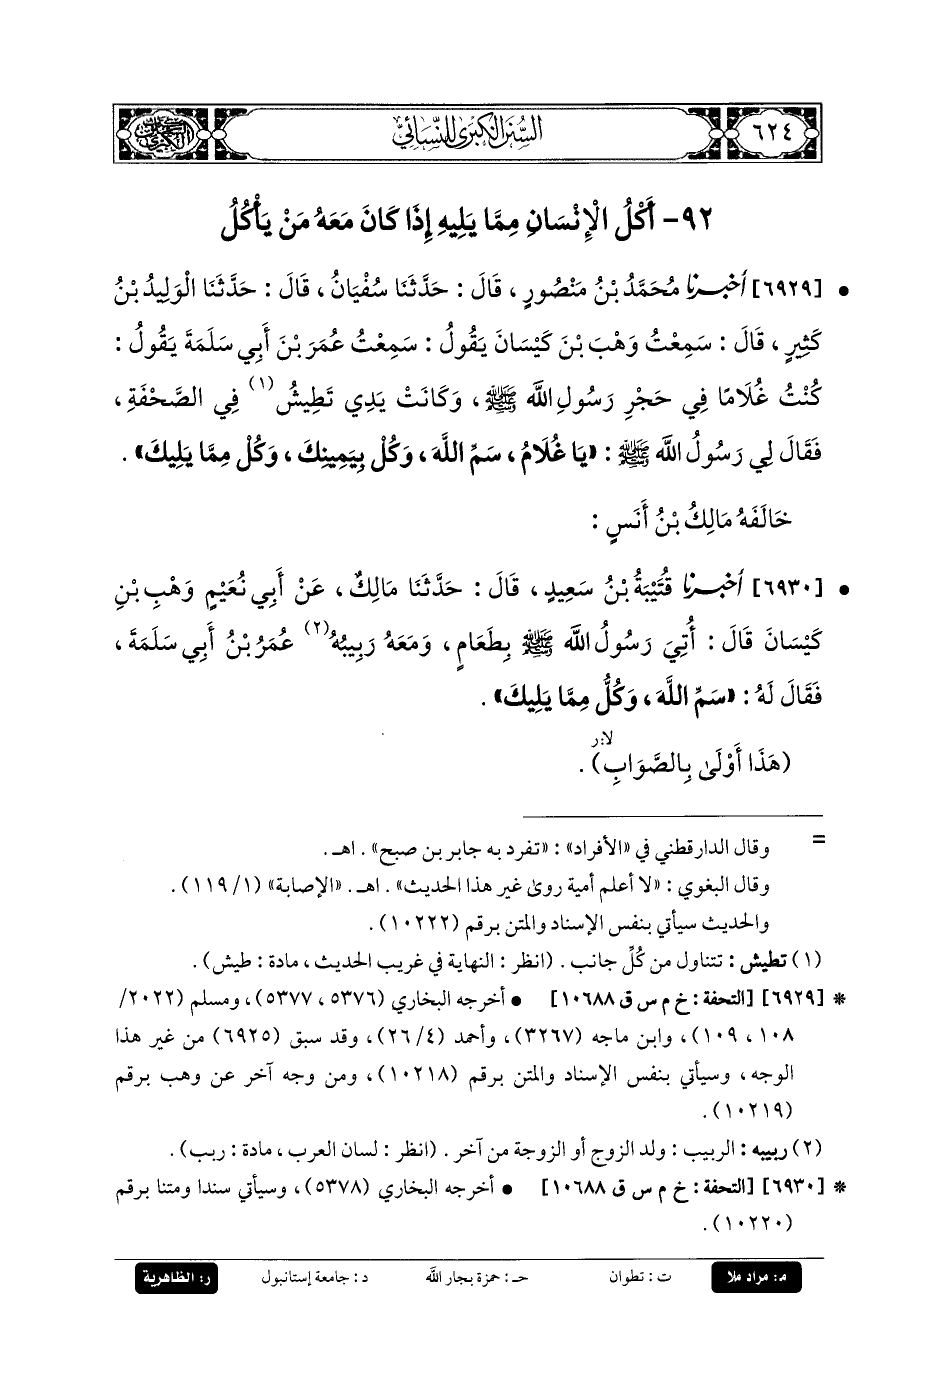 ٦٢٤
السُّنَنُ الكِبْرَى لِلنَّسَائِيِّ
٩٢- أَكْلُ الْإِنْسَانِ مِمَّا يَلِيهِ إِذَا كَانَ مَعَهُ مَنْ يَأْكُلُ
• [٦٩٢٩] أَخْبَرَنَا مُحَمَّدُ بْنُ مَنْصُورٍ، قَالَ: حَدَّثَنَا سُفْيَانُ، قَالَ: حَدَّثَنَا الْوَلِيدُ بْنُ
كَثِيرٍ، قَالَ: سَمِعْتُ وَهْبَ بْنَ كَيْسَانَ يَقُولُ: سَمِعْتُ عُمَرَ بْنَ أَبِي سَلَمَةَ يَقُولُ:
كُنْتُ غُلَامًا فِي حَجْرِ رَسُولِ اللَّه ﷺ، وَكَانَتْ يَدِي تَطِيشُ(١) فِي الصَّحْفَةِ،
فَقَالَ لِي رَسُولُ اللَّه ﷺ: «يَا غُلَامُ، سَمِّ اللَّهَ، وَكُلْ بِيَمِينِكَ، وَكُلْ مِمَّا يَلِيكَ».
خَالَفَهُ مَالِكُ بْنُ أَنَسٍ:
• [٦٩٣٠] أَخْبَرَنَا قُتَيْبَةُ بْنُ سَعِيدٍ، قَالَ: حَدَّثَنَا مَالِكٌ، عَنْ أَبِي نُعَيْمٍ وَهْبِ بْنِ
كَيْسَانَ قَالَ: أُتِيَ رَسُولُ اللَّه ﷺ بِطَعَامٍ، وَمَعَهُ رَبِيبُهُ(٢) عُمَرُ بْنُ أَبِي سَلَمَةَ،
فَقَالَ لَهُ: «سَمِّ اللَّهَ، وَكُلْ مِمَّا يَلِيكَ».
(هَذَا أَوْلَى بِالصَّوَابِ) لا:ر.
= وقال الدارقطني في «الأفراد»: «تفرد به جابر بن صبح». اهـ.
وقال البغوي: «لا أعلم أمية روى غير هذا الحديث». اهـ. «الإصابة» (١/ ١١٩).
والحديث سيأتي بنفس الإسناد والمتن برقم (١٠٢٢٢).
(١) تطيش: تتناول من كُلِّ جانب. (انظر: النهاية في غريب الحديث، مادة: طيش).
* [٦٩٢٩] [التحفة: خ م س ق ١٠٦٨٨] • أخرجه البخاري (٥٣٧٦، ٥٣٧٧)، ومسلم (٢٠٢٢/
١٠٨، ١٠٩)، وابن ماجه (٣٢٦٧)، وأحمد (٤/ ٢٦)، وقد سبق (٦٩٢٥) من غير هذا
الوجه، وسيأتي بنفس الإسناد والمتن برقم (١٠٢١٨)، ومن وجه آخر عن وهب برقم
(١٠٢١٩).
(٢) ربيبه: الربيب: ولد الزوج أو الزوجة من آخر. (انظر: لسان العرب، مادة: ربب).
* [٦٩٣٠] [التحفة: خ م س ق ١٠٦٨٨] • أخرجه البخاري (٥٣٧٨)، وسيأتي سندا ومتنا برقم
(١٠٢٢٠).
م: مراد ملا ت: تطوان حـ: حمزة بجار اللَّه د: جامعة إستانبول ر: الظاهرية